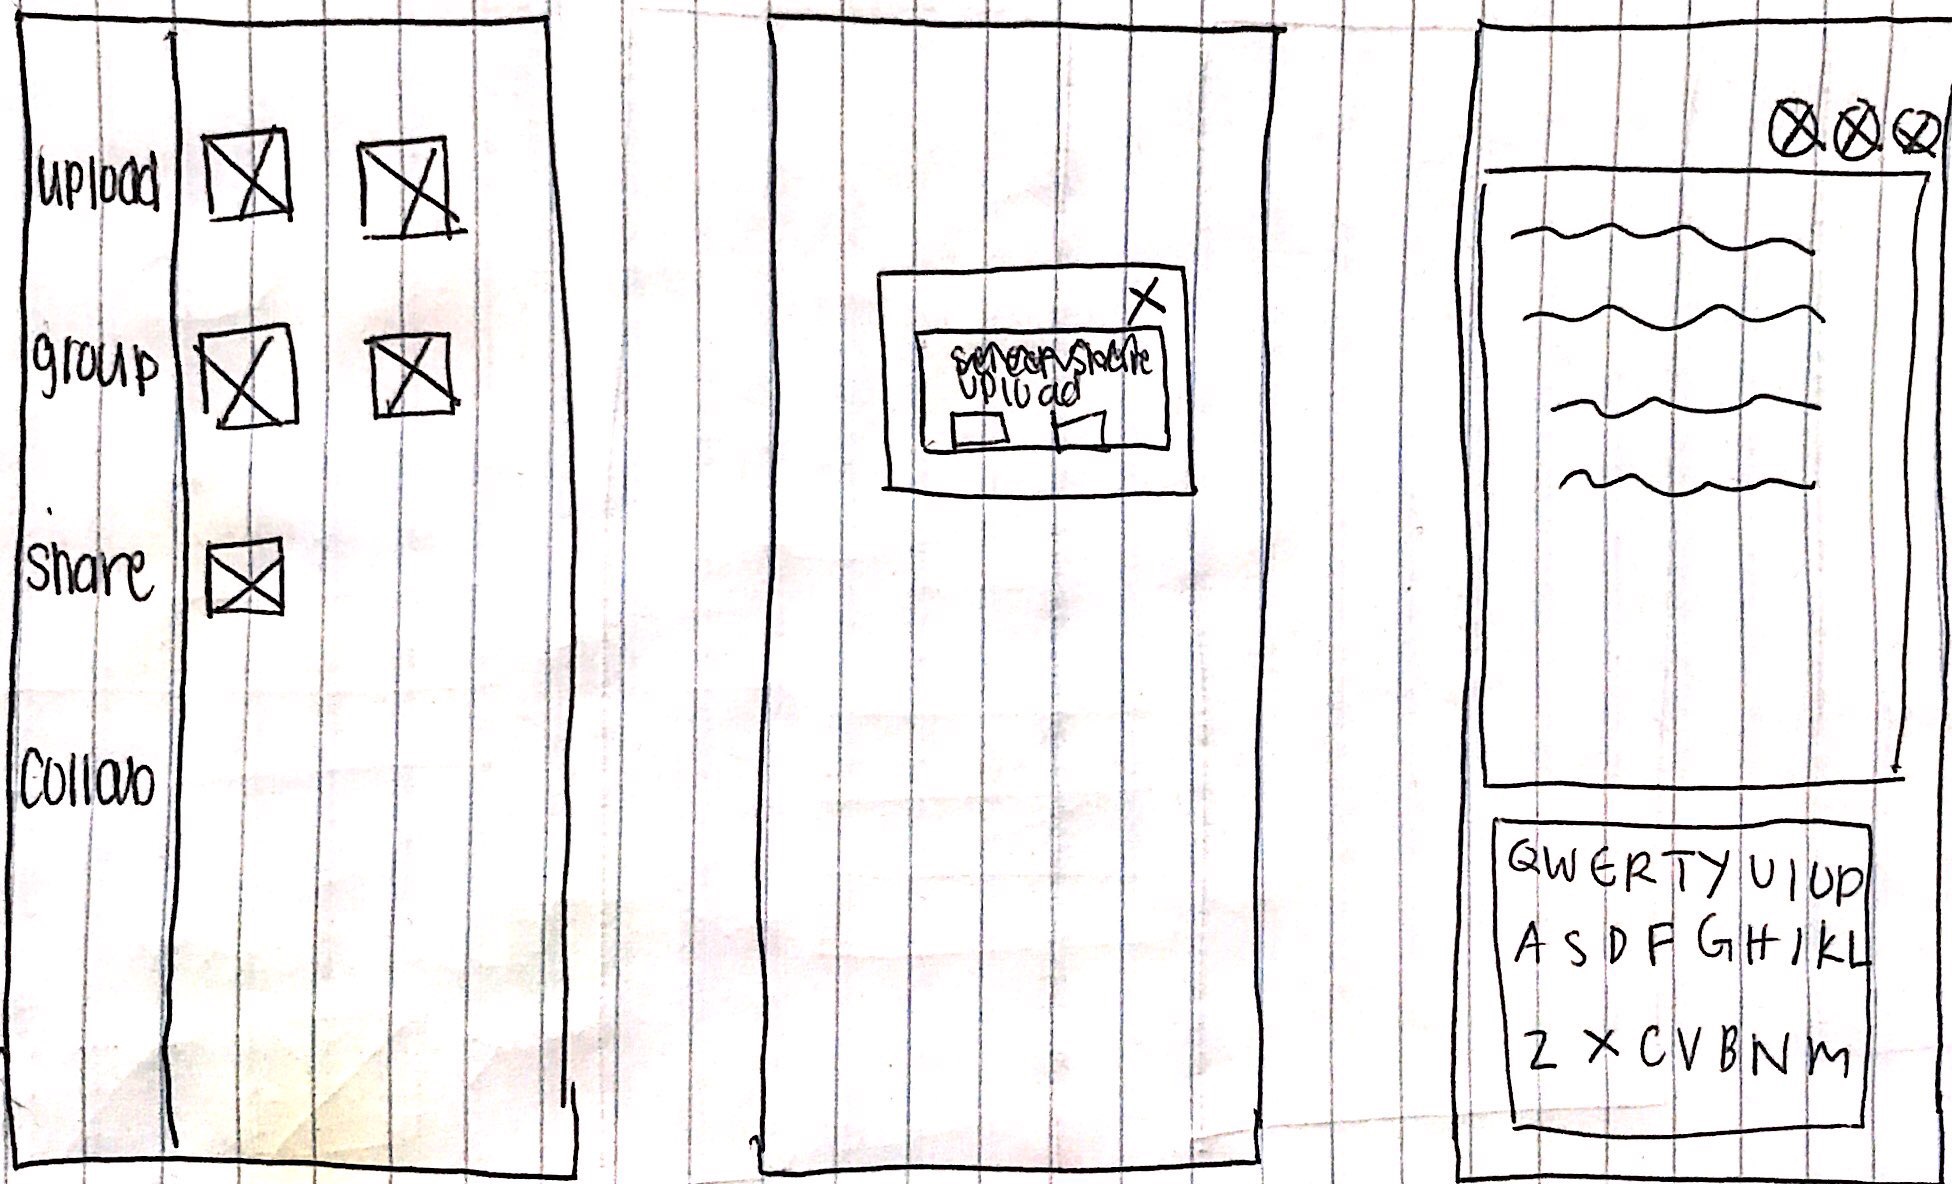 upload
group
share
collab
screenshare
upload
QWERTYUIOP
ASDFGHJKL
ZXCVBNM